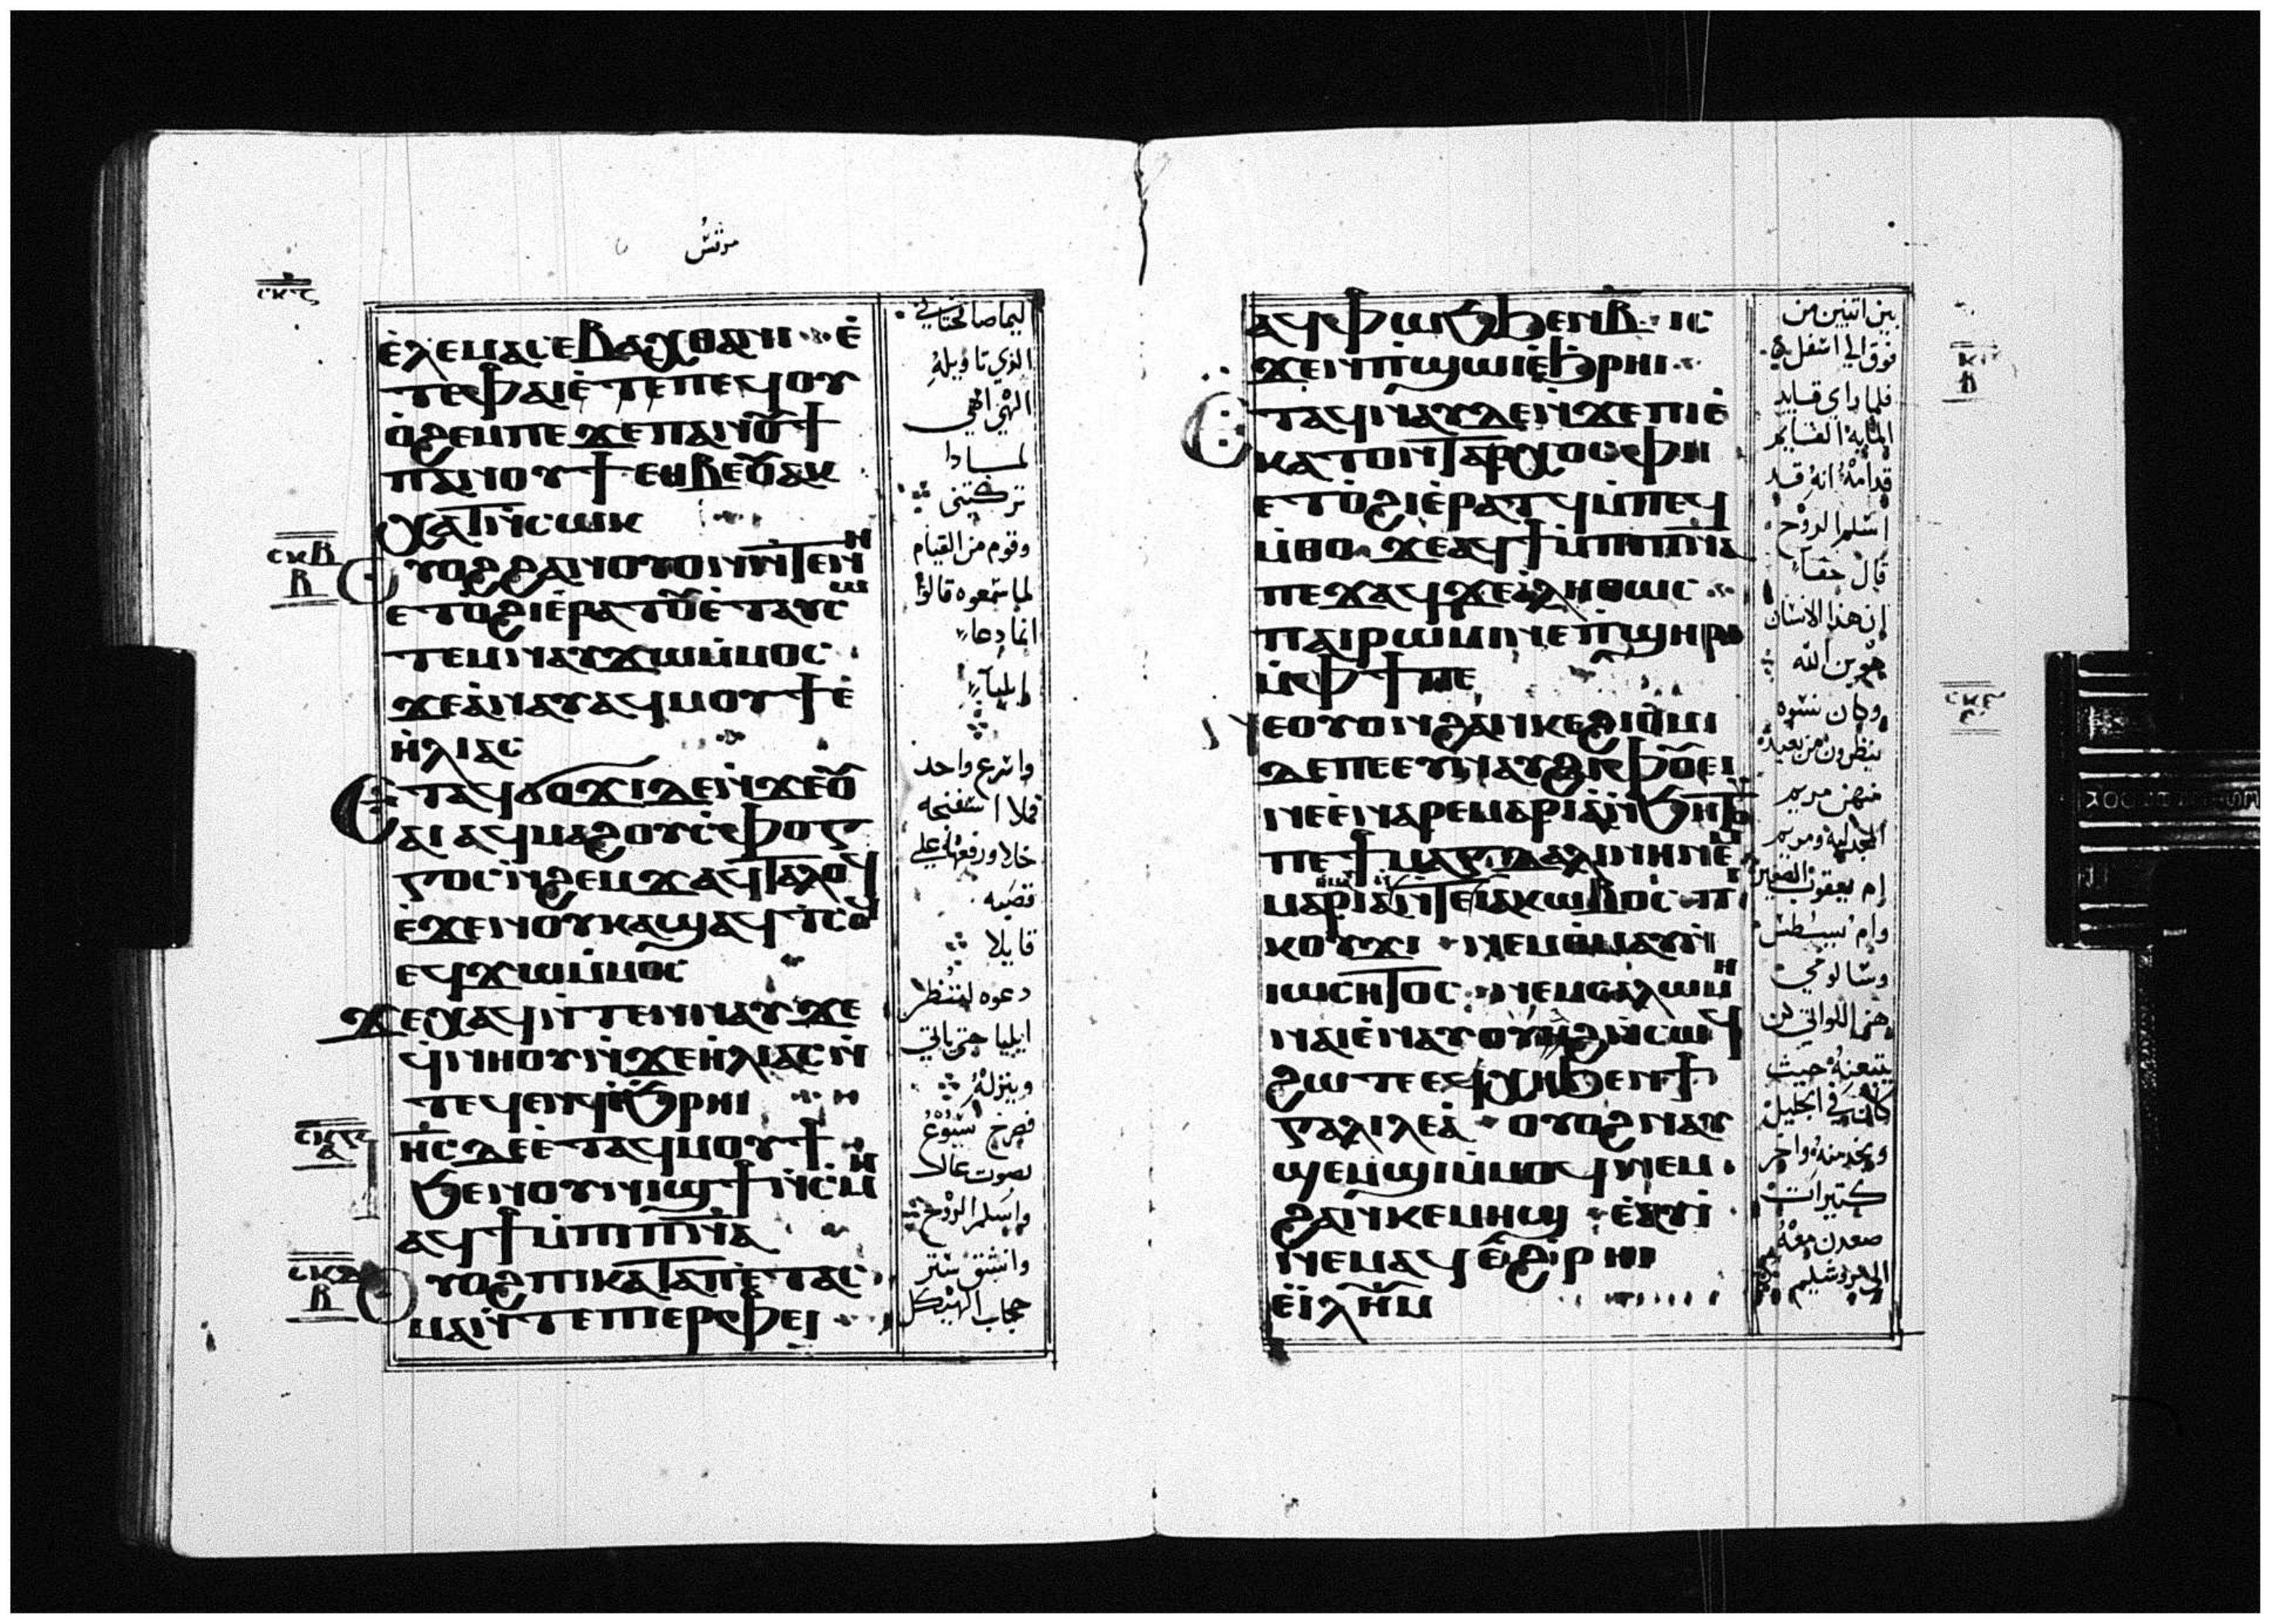 مرقس
ⲉ̀ⲗⲉⲙⲁⲥⲉⲃⲁⲭⲑⲁⲛⲓ ⲉ̀
ⲧⲉⲫⲁⲓⲉ̀ⲧⲉⲡⲉϥⲟⲩ
ⲟ̀ϩⲉⲙⲡⲉϫⲉⲡⲁⲛⲟⲩϯ
ⲡⲁⲛⲟⲩϯⲉⲑⲃⲉⲟⲩⲁⲕ
ⲭⲁⲧⲛ̀ⲥⲱⲕ
ⲟⲩⲟϩϩⲁⲛⲟⲩⲟⲛⲛ̀ⲧⲉⲛⲏ
ⲉⲧⲟϩⲓⲉ̀ⲣⲁⲧⲟⲩⲉ̀ⲧⲁⲩⲥⲱ
ⲧⲉⲙⲛⲁⲩϫⲱⲙ̀ⲙⲟⲥ
ϫⲉⲁ̀ⲛⲁⲩⲁϥⲙⲟⲩϯⲉ̀
ⲏ̀ⲗⲓⲁⲥ
ⲉⲧⲁϥϭⲟϫⲓⲇⲉⲛ̀ϫⲉⲟⲩ
ⲁⲓⲁϥⲙⲁϩⲟⲩⲥ̀ⲫⲟⲅ
ⲅⲟⲥⲛ̀ϩⲉⲙϫⲁϥⲧⲁⲗⲟϥ
ⲉ̀ϫⲉⲛⲟⲩⲕⲁϣⲁϥⲧⲥⲟϥ
ⲉϥϫⲱⲙ̀ⲙⲟⲥ
ϫⲉⲭⲁϥⲛ̀ⲧⲉⲛⲛⲁⲩϫⲉ
ϥⲛⲏⲟⲩⲛ̀ϫⲉⲏ̀ⲗⲓⲁⲥⲛ̀
ⲧⲉϥⲉⲛϥⲉ̀ϧⲣⲏⲓ
ⲓⲏ̅ⲥ̅ⲇⲉⲉ̀ⲧⲁϥⲙⲟⲩϯ
ϧⲉⲛⲟⲩⲛⲓϣϯⲛ̀ⲥⲙⲏ
ⲁϥϯⲙ̀ⲡⲓⲡ̅ⲛ̅ⲁ̅
ⲟⲩⲟϩⲡⲓⲕⲁⲧⲁⲡⲉ̀ⲧⲁⲥ
ⲙⲁⲛ̀ⲧⲉⲡⲓⲉⲣⲫⲉⲓ
ⲥⲕⲃ
ⲃ
الذي تاويله
الهي الهي
لماذا
تركتني
وقوم من القيام
لما سمعوه قالوا
انما دعا
ايليا
واسرع واحد
فملا اسفنجه
خلا ورفعها علي
قصبه
قايلا
دعوه لننظر
ايليا حتي ياتي
وينزله
فصرخ ايسوع
بصوت عال
واسلم الروح
وانشق ستر
حجاب الهيكل
ⲁϥⲫⲱϧϧⲉⲛⲃ ⲓⲥ
ϫⲉⲛⲡ̀ϣⲱⲓⲉ̀ϧⲣⲏⲓ
ⲉⲧⲁϥⲛⲁⲩⲇⲉⲛ̀ϫⲉⲡⲓⲉ̀
ⲕⲁⲧⲟⲛⲧⲁⲣⲭⲟⲥⲫⲏ
ⲉⲧⲟ̀ϩⲓⲉ̀ⲣⲁⲧϥⲙ̀ⲡⲉϥ
ⲙ̀ⲑⲟ ϫⲉⲁϥϯⲙ̀ⲡⲓⲡ̅ⲛ̅ⲁ̅
ⲡⲉϫⲁϥϫⲉⲁ̀ⲗⲏⲑⲱⲥ
ⲡⲁⲓⲣⲱⲙⲓⲛⲉⲡ̀ϣⲏⲣⲓ
ⲙ̀ⲫϯⲡⲉ
ⲛⲉⲟⲩⲟⲛϩⲁⲛⲕⲉϩⲓⲟⲙⲓ
ⲇⲉⲡⲉⲉⲩⲛⲁⲩϩⲓⲫⲟⲩⲉⲓ
ⲛⲉⲉ̀ⲛⲁⲣⲉⲙⲁⲣⲓⲁⲛ̀ϧⲏⲧⲟⲩ
ⲡⲉϯⲙⲁⲅⲇⲁⲗⲓⲛⲏⲛⲉⲙ
ⲙⲁⲣⲓⲁⲛ̀ⲧⲉⲓⲁⲕⲱⲃⲟⲥ ⲡⲓ
ⲕⲟⲩϫⲓ ⲛⲉⲙⲑ̀ⲙⲁⲩⲛ̀
ⲓⲱⲥⲏⲧⲟⲥ ⲛⲉⲙⲥⲁⲗⲱⲙⲏ
ⲛⲁⲓⲉ̀ⲛⲁⲩⲟⲩⲏϩⲛ̀ⲥⲱϥ
ϩⲱⲧⲉⲉϥⲭⲏϧⲉⲛϯ
ⲅⲁⲗⲓⲗⲉⲁ̀ ⲟⲩⲟϩⲛⲁⲩ
ϣⲉⲙϣⲓⲙ̀ⲙⲟϥⲛⲉⲙ
ϩⲁⲛⲕⲉⲙⲏϣ ⲉ̀ⲁⲩⲓ̀
ⲛⲉⲙⲁϥⲉ̀ϩⲣⲏⲓ
ⲉⲓ̀ⲗ̅ⲏ̅ⲙ̅
بين اثنين من
فوق الي اسفل
فلما راي قايد
المايه القايم
قدامه انه قد
اسلم الروح
قال حقا
ان هذا الانسان
هو بن الله
وكان نسوه
ينظرون من بعيد
منهن مريم
المجدليه ومريم
ام يعقوب الصغير
وسالومي
هم اللواتي كن
يتبعنه حيث
كان في الجليل
ويخدمنه واخر
كثيرات
صعدن معه
الي يروشليم